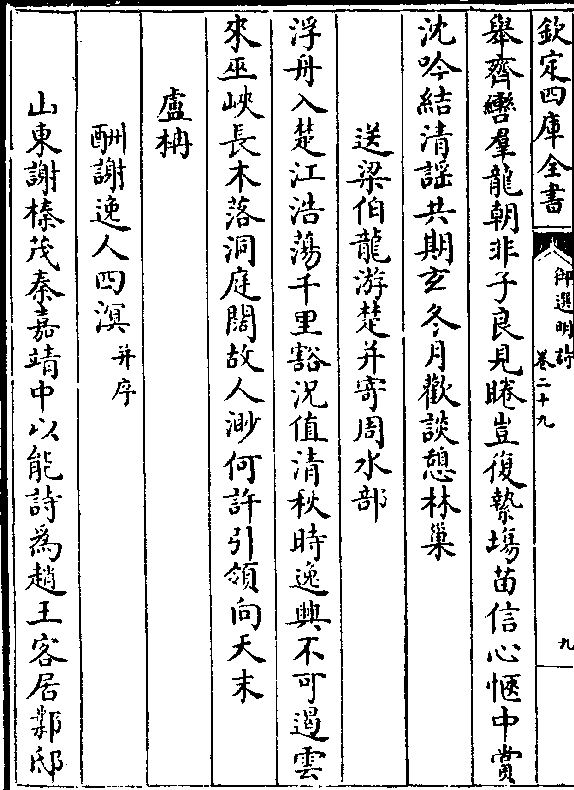 欽定四庫全書
御選明詩
卷二十九
九
舉齊轡羣龍朝非子良見睠豈復縶場苗信心愜中賞
沈吟結清謡共期玄冬月歡談憩林巢
送梁伯龍游楚并寄周水部
浮舟入楚江浩蕩千里豁況值清秋時逸興不可遏雲
來巫峽長木落洞庭闊故人渺何許引領向天末
盧柟
酬謝逸人四溟并序
山東謝榛茂秦嘉靖中以能詩爲趙王客居鄴邸